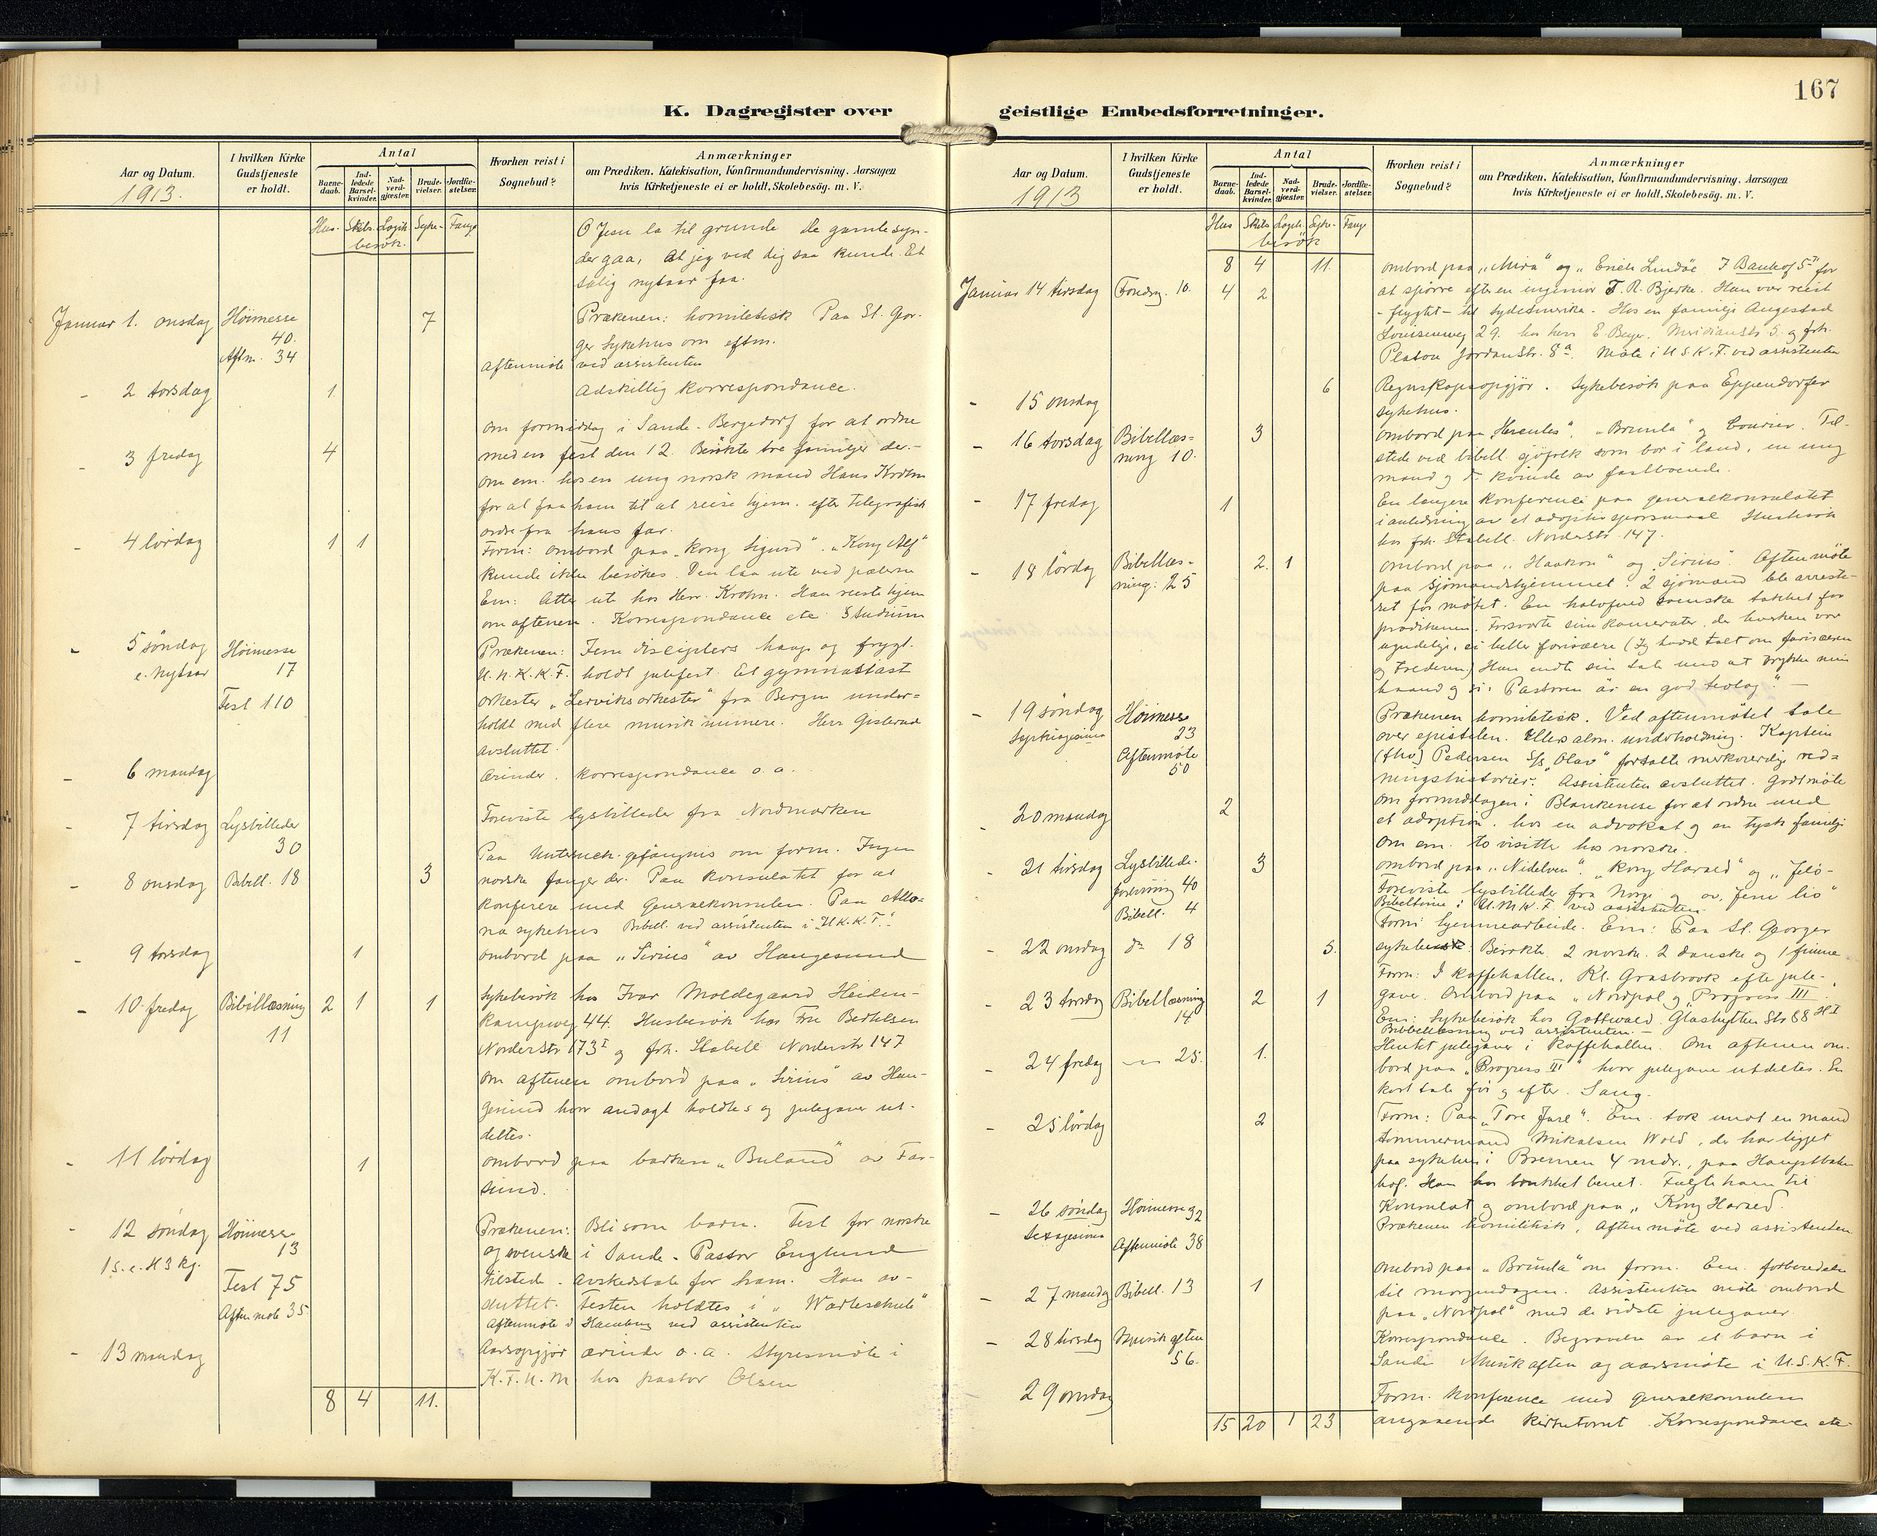 167
K. Dagregister over geistlige Embedsforretninger.
Aar og Datum.
1913.
I hvilken Kirke Gudstjeneste er holdt.
Antal
Barnedaab.
Indledede Barselkvinder.
Nadverdgjæster.
Brudevielser.
Jordfæstelser.
Hvorhen reist i Sognebud?
Anmærkninger
om Prædiken, Katekisation, Konfirmandundervisning. Aarsagen
hvis Kirketjeneste ei er holdt, Skolebesög. m. V.
Hus- Skibs- Syke- Fange
besøk.
O Jesu la til grunde De gamle syn-
der gaa, At jeg ved dig saa kunde Et
salig nytaar faa.
Januar 1. onsdag Høimesse 40. Aftm. 34 7 Prækenen: homiletisk Paa St. Geor-
ger Sykehus om eftm.
aftenmøte ved assistenten
- 2 torsdag 1 Adskillig korrespondance.
- 3 fredag 4 om formiddag i Sande-Bergedorf for at ordne
med en fest den 12. Besøkte tre familjer der.-
om em. hos en ung norsk mand Hans Krohn
for at faa ham til at reise hjem. efter telegrafisk
ordre fra hans far.
- 4 lørdag 1 1 Form: ombord paa "Kong Sigurd". "Kong Alf"
kunde ikke besøkes. Den laa ute ved pælerne
Em: Atter ute hos Herr. Krohn. Han reiste hjem
om aftenen. Korrespondance etc. Studium
- 5 søndag e. nytaar Høimesse 17 Fest 110 Prækenen: Jesu disciplers haap og frygt.
U.K.K.F. holdt julefest. Et gymnastast
orkester "Lerviksorkester" fra Bergen under-
holdt med flere musiknumere. Herr Gislerud
avsluttet.
- 6 mandag Ærinder. korrespondance o.a.
- 7 tirsdag Lysbilleder 30 Foreviste lysbilleder fra Nordmarken
- 8 onsdag Bibell. 18 3 Paa Untersuch.gefängnis om form. Ingen
norske fanger der. Paa konsulatet for at
konferere med Generalkonsulen. Paa Alto-
na sykehus Bibell. ved assistenten i "U.K.K.F."
- 9 torsdag 1 ombord paa "Sirius" av Haugesund
- 10 fredag Bibellæsning 11 2 1 1 Sykebesøk hos Ivar Moldegaard Heiden-
kampsweg 44. Husbesøk hos Fru Berthelsen
Norderstr 173 I og frk. Stabell Norderstr 147
om aftenen ombord paa "Sirius" av Hau-
gesund hvor andagt holdtes og julegaver ut-
deltes.
- 11 lørdag 1 ombord paa barken "Buland" av Far-
sund.
- 12 søndag 1 s. e. H 3 kg. Høimesse 13 Fest 75 Aftenmøte 35 Prækenen: Bli som barn. Fest for norske
og svenske i Sande. Pastor Englund
tilstede. avskedstale for ham. Han av-
sluttet. Festen holdtes i "Warteschule"
Aftenmøte i Hamburg ved assistenten
- 13 mandag Aarsopgjør ærinder o.a. Styresmøte i
K.F.U.M hos pastor Olsen
8 4 11.
Aar og Datum.
1913
I hvilken Kirke Gudstjeneste er holdt.
Antal
Barnedaab.
Indledede Barselkvinder.
Nadverdgjæster.
Brudevielser.
Jordfæstelser.
Hvorhen reist i Sognebud?
Anmærkninger
om Prædiken, Katekisation, Konfirmandundervisning. Aarsagen
hvis Kirketjeneste ei er holdt, Skolebesög. m. V.
Hus Skibs Syke- Fange
besøk
8 4 11.
Januar 14 tirsdag 10. 4 2 ombord paa "Mira" og "Erich Lindöe I Bankof 5 II for
at spørre efter en ingeniør T. R. Bjerke. Han var reist
-flygtet- til Sydamerika. Hos en familje Angestad
Louisenweg 29. hos herr E. Beyer. Meridianstr 5. og frk.
Platou Jordanstr. 8 a. Møte i U.S.K.F. ved assistenten
- 15 onsdag 6 Regnskapsopgjør. Sykebesøk paa Eppendorfer
sykehus.
- 16 torsdag Bibellæsning 10. 3 ombord paa "Hercules", "Brunla" og Courier. Til-
stede ved bibell. sjøfolk som bor i land, en ung
mand og kvinde av fastboende.
- 17 fredag 1 En længere konference paa generalkonsulatet
i anledning av et adoptionsspørsmaal Husbesøk
hos frk. Stabell. Norderstr. 147.
- 18 lørdag Bibellæsning: 25 2. 1 ombord paa "Haakon" og "Sirius". Aftenmøte
paa sjømandshjemmet. 2 sjømænd ble arreste-
ret før møtet. En halvfuld svenske takket for
prædikenen. Forsvarte sine kamerater, de hverken var
ugudelige, ei heller farisæere (Jeg hadde talt om farisæeren
og tolderen) Han endte sin tale med at trykke min
haand og si: Pastoren är en god teolog"-
- 19 søndag Septuagesima Høimesse 23 Aftenmøte 50 Prækenen homiletisk. Ved aftenmøtet tale
over epistelen. Ellers alm. underholdning. Kaptein
Pedersen S/s "Olav" fortalte merkværdige red-
ningshistorier. Assistenten avsluttet. Godt møte
- 20 mandag 2 om formiddagen i Blankenese for at ordne med
et adoption. hos en advokat og en tysk familje
Om em. to visitter hos norske.
- 21 tirsdag Lysbilledforevisning 40 Bibell. 4 3 ombord paa "Nidelven". "Kong Harald" og "Jelö-
Foreviste lysbilleder fra Norge og av Jesu liv"
Bibeltime i U.M.K.F. ved assistenten.
- 22 onsdag do 18 5. Form: hjemmearbeide. Em: Paa St. Georger
sykehus. Besøkte 2 norske. 2 danske og 1 finne.
- 23 torsdag Bibellæsning 14 2 1 Form: I kaffehallen. Kl. Grasbrook efter jule-
gaver. Ombord paa "Nordpol og "Progress III
Em: Sykebesøk hos Gottwald. Glashütten Str 88 H I
Bibellæsning ved assistenten.-
- 24 fredag -"- 25. 1. Hentet julegaver i kaffehallen. Om aftenen om-
bord paa "Progress III" hvor julegaver utdeltes. En
kort tale før og efter. Sang.
- 25 lørdag 2 Form: Paa "Tore Jarl". Em. tok imot en mand
tømmermand Mikalsen Wold, der har ligget
paa sykehus i Bremen 4 mdr., paa Hauptbahn
hof. Han har brukket benet. Fulgte ham til
Konsulat og ombord paa "Kong Harald.
- 26 søndag Sexagesima Høimesse 32 Aftenmøte 38 Prækenen homiletisk. Aftenmøte ved assistenten
- 27 mandag Bibell. 13 1 ombord paa "Brunla" om form. Em. forberedelse
til morgendagen. Assistenten møte ombord
paa "Nordpol" med de sidste julegaver.
- 28 tirsdag Musikaften 56. Korrespondance. Begravelse av et barn i
Sande Musikaften og aarsmøte i U.S.K.F.
29 onsdag Form. konference med generalkonsulen
angaaende kirketomt. Korrespondance etc.
15 20 1 23